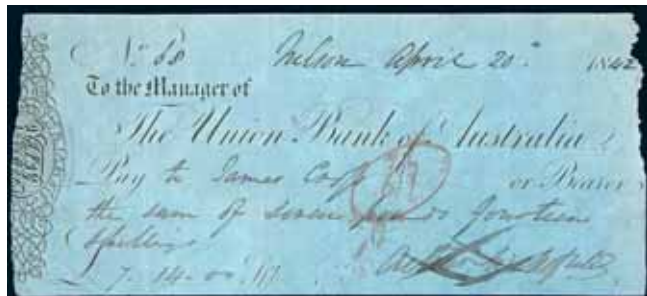 No 68 Nelson April 20 1842
To the Manager of
The Union Bank of Australia
Pay to James or Bearer
the sum of seven pounds fourteen
shillings
£ 7.14.00